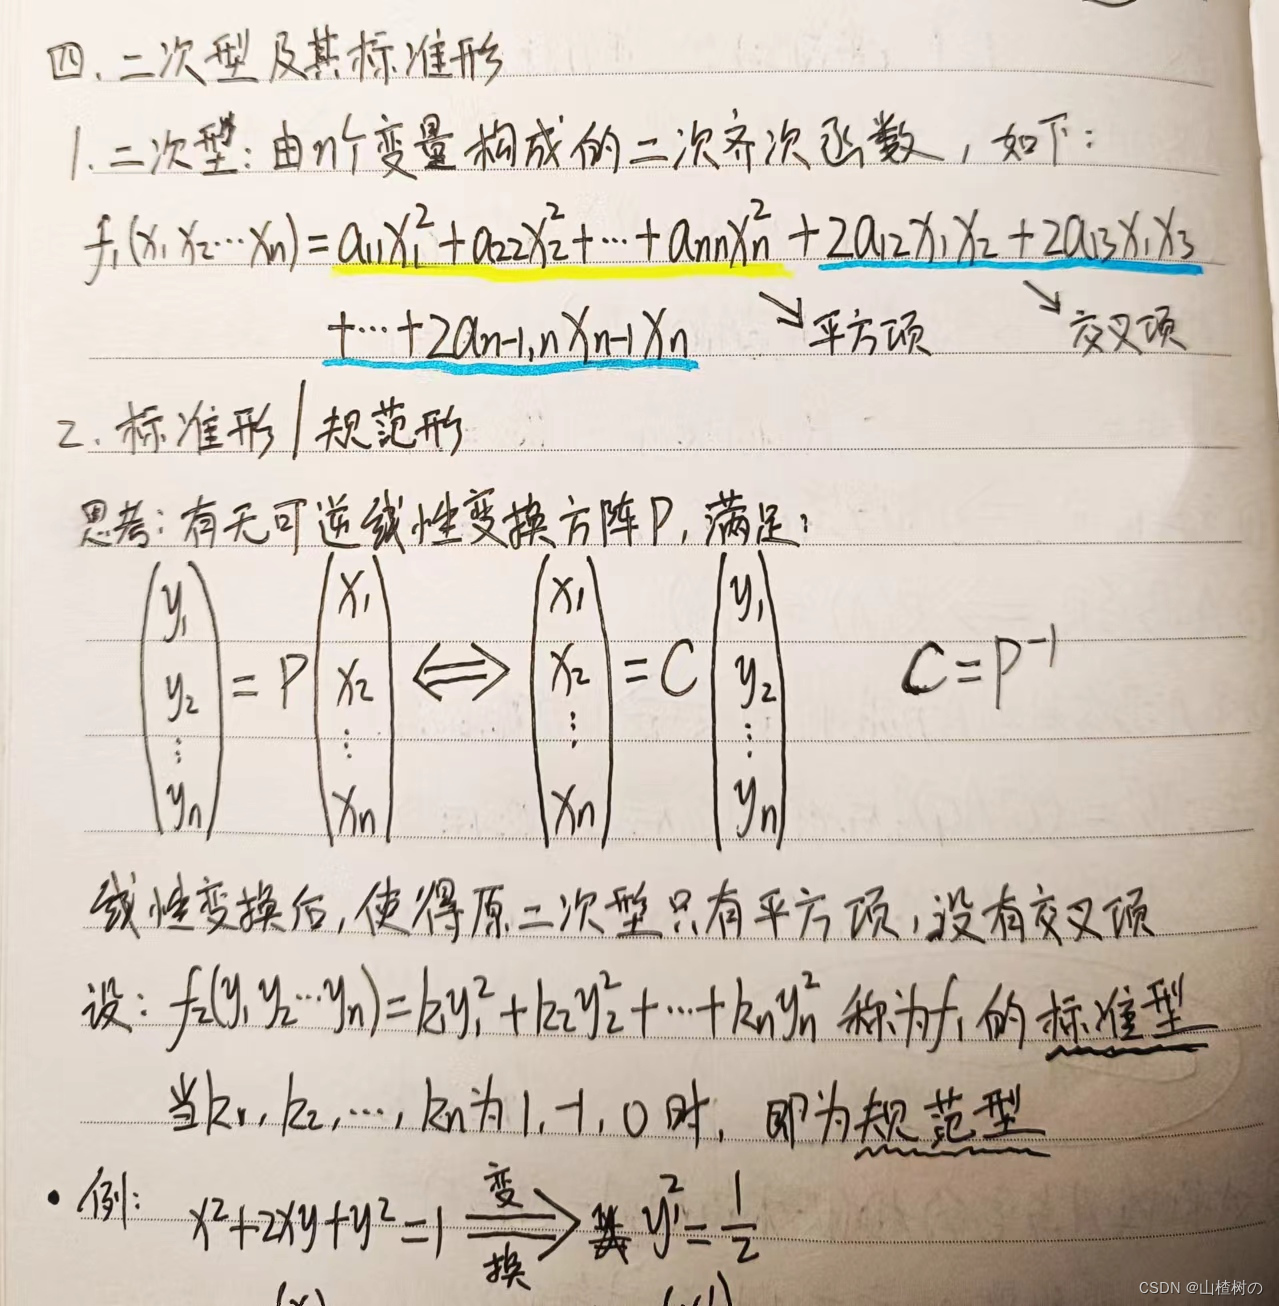 四.二次型及其标准形
1.二次型:由n个变量构成的二次齐次函数,如下:
f₁(x₁x₂…xn)=a₁₁x₁²+a₂₂x₂²+…+annxn²+2a₁₂x₁x₂+2a₁₃x₁x₃
+…+2an-1,nxn-1xn ↘平方项 ↘交叉项
2.标准形/规范形
思考:有无可逆线性变换方阵P,满足:
(y₁ y₂ ⋮ yn)=P(x₁ x₂ ⋮ xn)⟺(x₁ x₂ ⋮ xn)=C(y₁ y₂ ⋮ yn) C=P⁻¹
线性变换后,使得原二次型只有平方项,没有交叉项
设:f₂(y₁y₂…yn)=k₁y₁²+k₂y₂²+…+knyn² 称为f₁的标准型
当k₁,k₂,…,kn为1,-1,0时,即为规范型
•例: x²+2xy+y²=1 变换⇒ y₁²=1/2
(x) (x')
CSDN @山楂树の